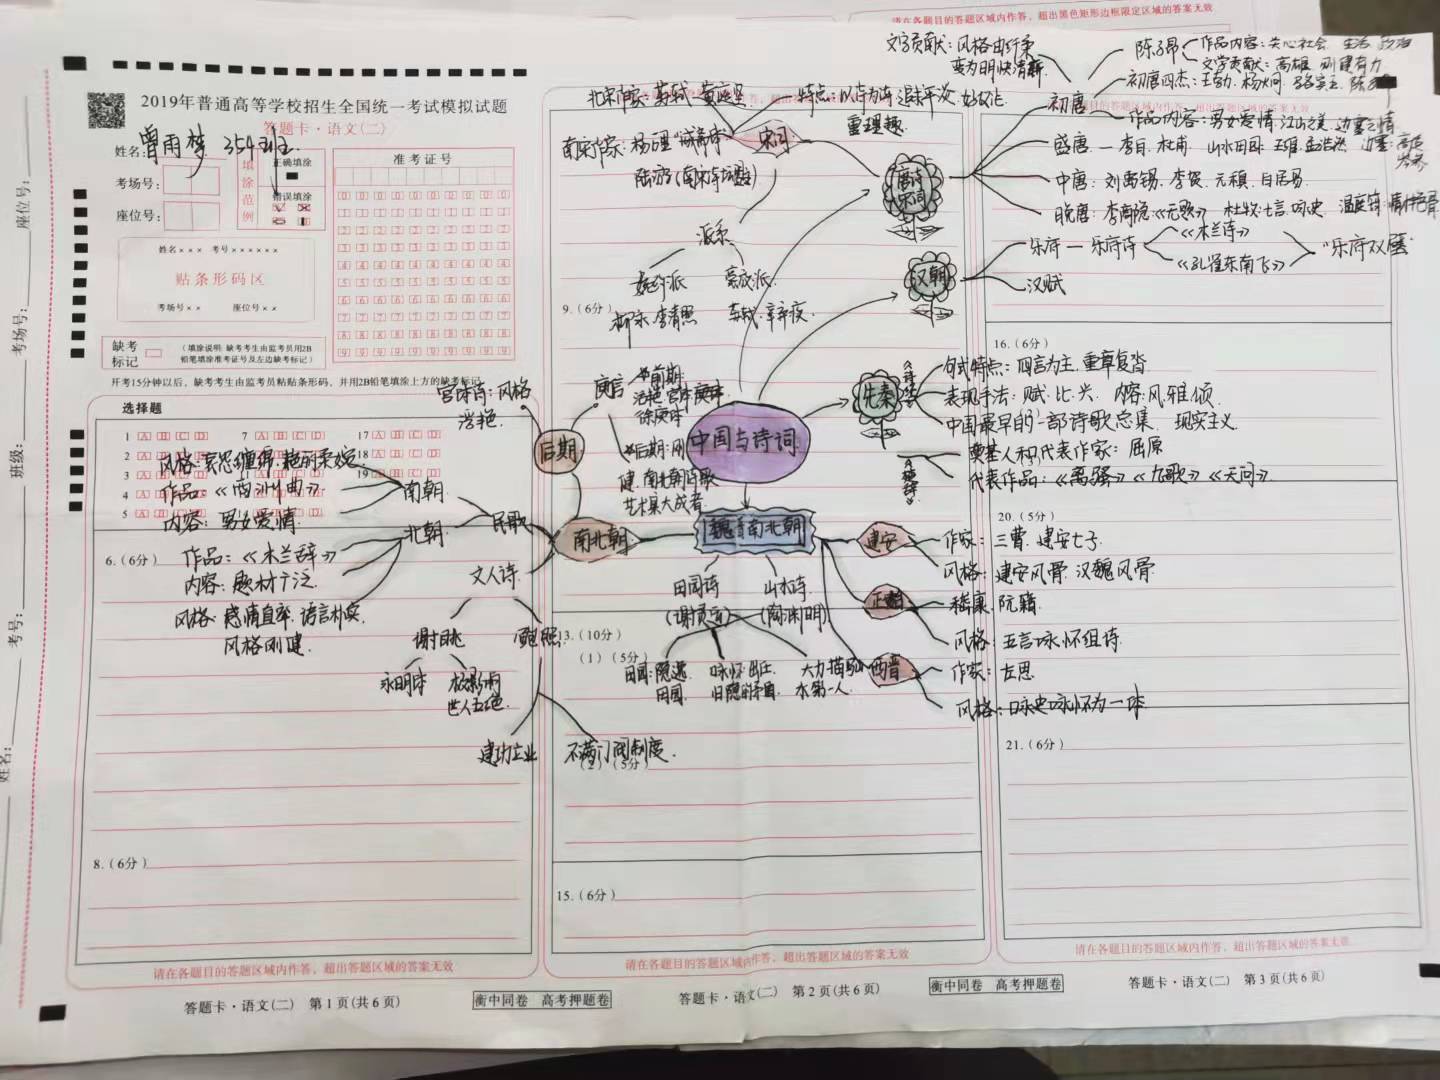 请在各题目的答题区域内作答，超出黑色矩形边框限定区域的答案无效
2019年普通高等学校招生全国统一考试模拟试题
答题卡·语文(二)
姓名:
曾雨梦 354班
考场号:
座位号:
填涂范例
正确填涂
错误填涂
准考证号
姓名××× 考号××××××
贴条形码区
考场号×× 座位号××
缺考标记
(填涂说明:缺考考生由监考员用2B铅笔填涂缺考标记及左边缺考标记)
开考15分钟以后，缺考考生由监考员粘贴条形码，并用2B铅笔填涂上方的缺考标记
选择题
座位号:
考场号:
班级:
考号:
姓名:
6.(6分)
8.(6分)
9.(6分)
13.(10分)
(1)(5分)
(2)(5分)
15.(6分)
16.(6分)
20.(5分)
21.(6分)
中国与诗词
唐诗宋词
初唐
文学贡献:风格由纤柔
变为明快清新
陈子昂
作品内容:关心社会 生活
文学贡献:高雄 刚健有力
初唐四杰:王勃 杨炯
作品内容:男女爱情.江山之美.边塞之情
盛唐 — 李白.杜甫 山水田园:王维.孟浩然
中唐:刘禹锡.李贺.元稹.白居易
晚唐:李商隐《无题》 杜牧:七言.咏史 温庭筠
宋词
北宋作家:苏轼 黄庭坚
特点:以诗为词
重理趣
南宋作家:杨万里"诚斋体"
陆游
派系
婉约派
豪放派
柳永.李清照
苏轼.辛弃疾
汉朝
乐诗 — 乐府诗
《木兰诗》
《孔雀东南飞》
"乐府双璧"
汉赋
先秦
句式特点:四言为主.重章复沓
表现手法:赋.比.兴. 内容:风.雅.颂
中国最早的一部诗歌总集. 现实主义
奠基人和代表作家:屈原
代表作品:《离骚》《九歌》《天问》
魏晋南北朝
建安
作家:三曹.建安七子
风格:建安风骨.汉魏风骨
正始
嵇康.阮籍
风格:五言咏怀组诗.
西晋
作家:左思
风格:咏史咏怀为一体
田园诗
(谢灵运)
山水诗
(陶渊明)
田园:隐逸
田园.
咏怀:出仕
归隐的矛盾
大力描写山
水第一人.
南北朝
后期
宫体诗:风格
浮艳.
庾信
前期
宫体庾体
徐庾体
后期:刚
健.南北朝诗歌
艺术集大成者
民歌
南朝
风格:哀思缠绵.艳丽柔婉
作品:《西洲曲》
内容:男女爱情
北朝
作品:《木兰辞》
内容:题材广泛
风格:感情直率.语言朴实
风格刚健.
文人诗.
谢朓
鲍照
永明体
建功立业
不满门阀制度.
请在各题目的答题区域内作答，超出答题区域的答案无效
请在各题目的答题区域内作答，超出答题区域的答案无效
请在各题目的答题区域内作答，超出答题区域的答案无效
答题卡·语文(二) 第1页(共6页)
衡中同卷 高考押题卷
答题卡·语文(二) 第2页(共6页)
衡中同卷 高考押题卷
答题卡·语文(二) 第3页(共6页)